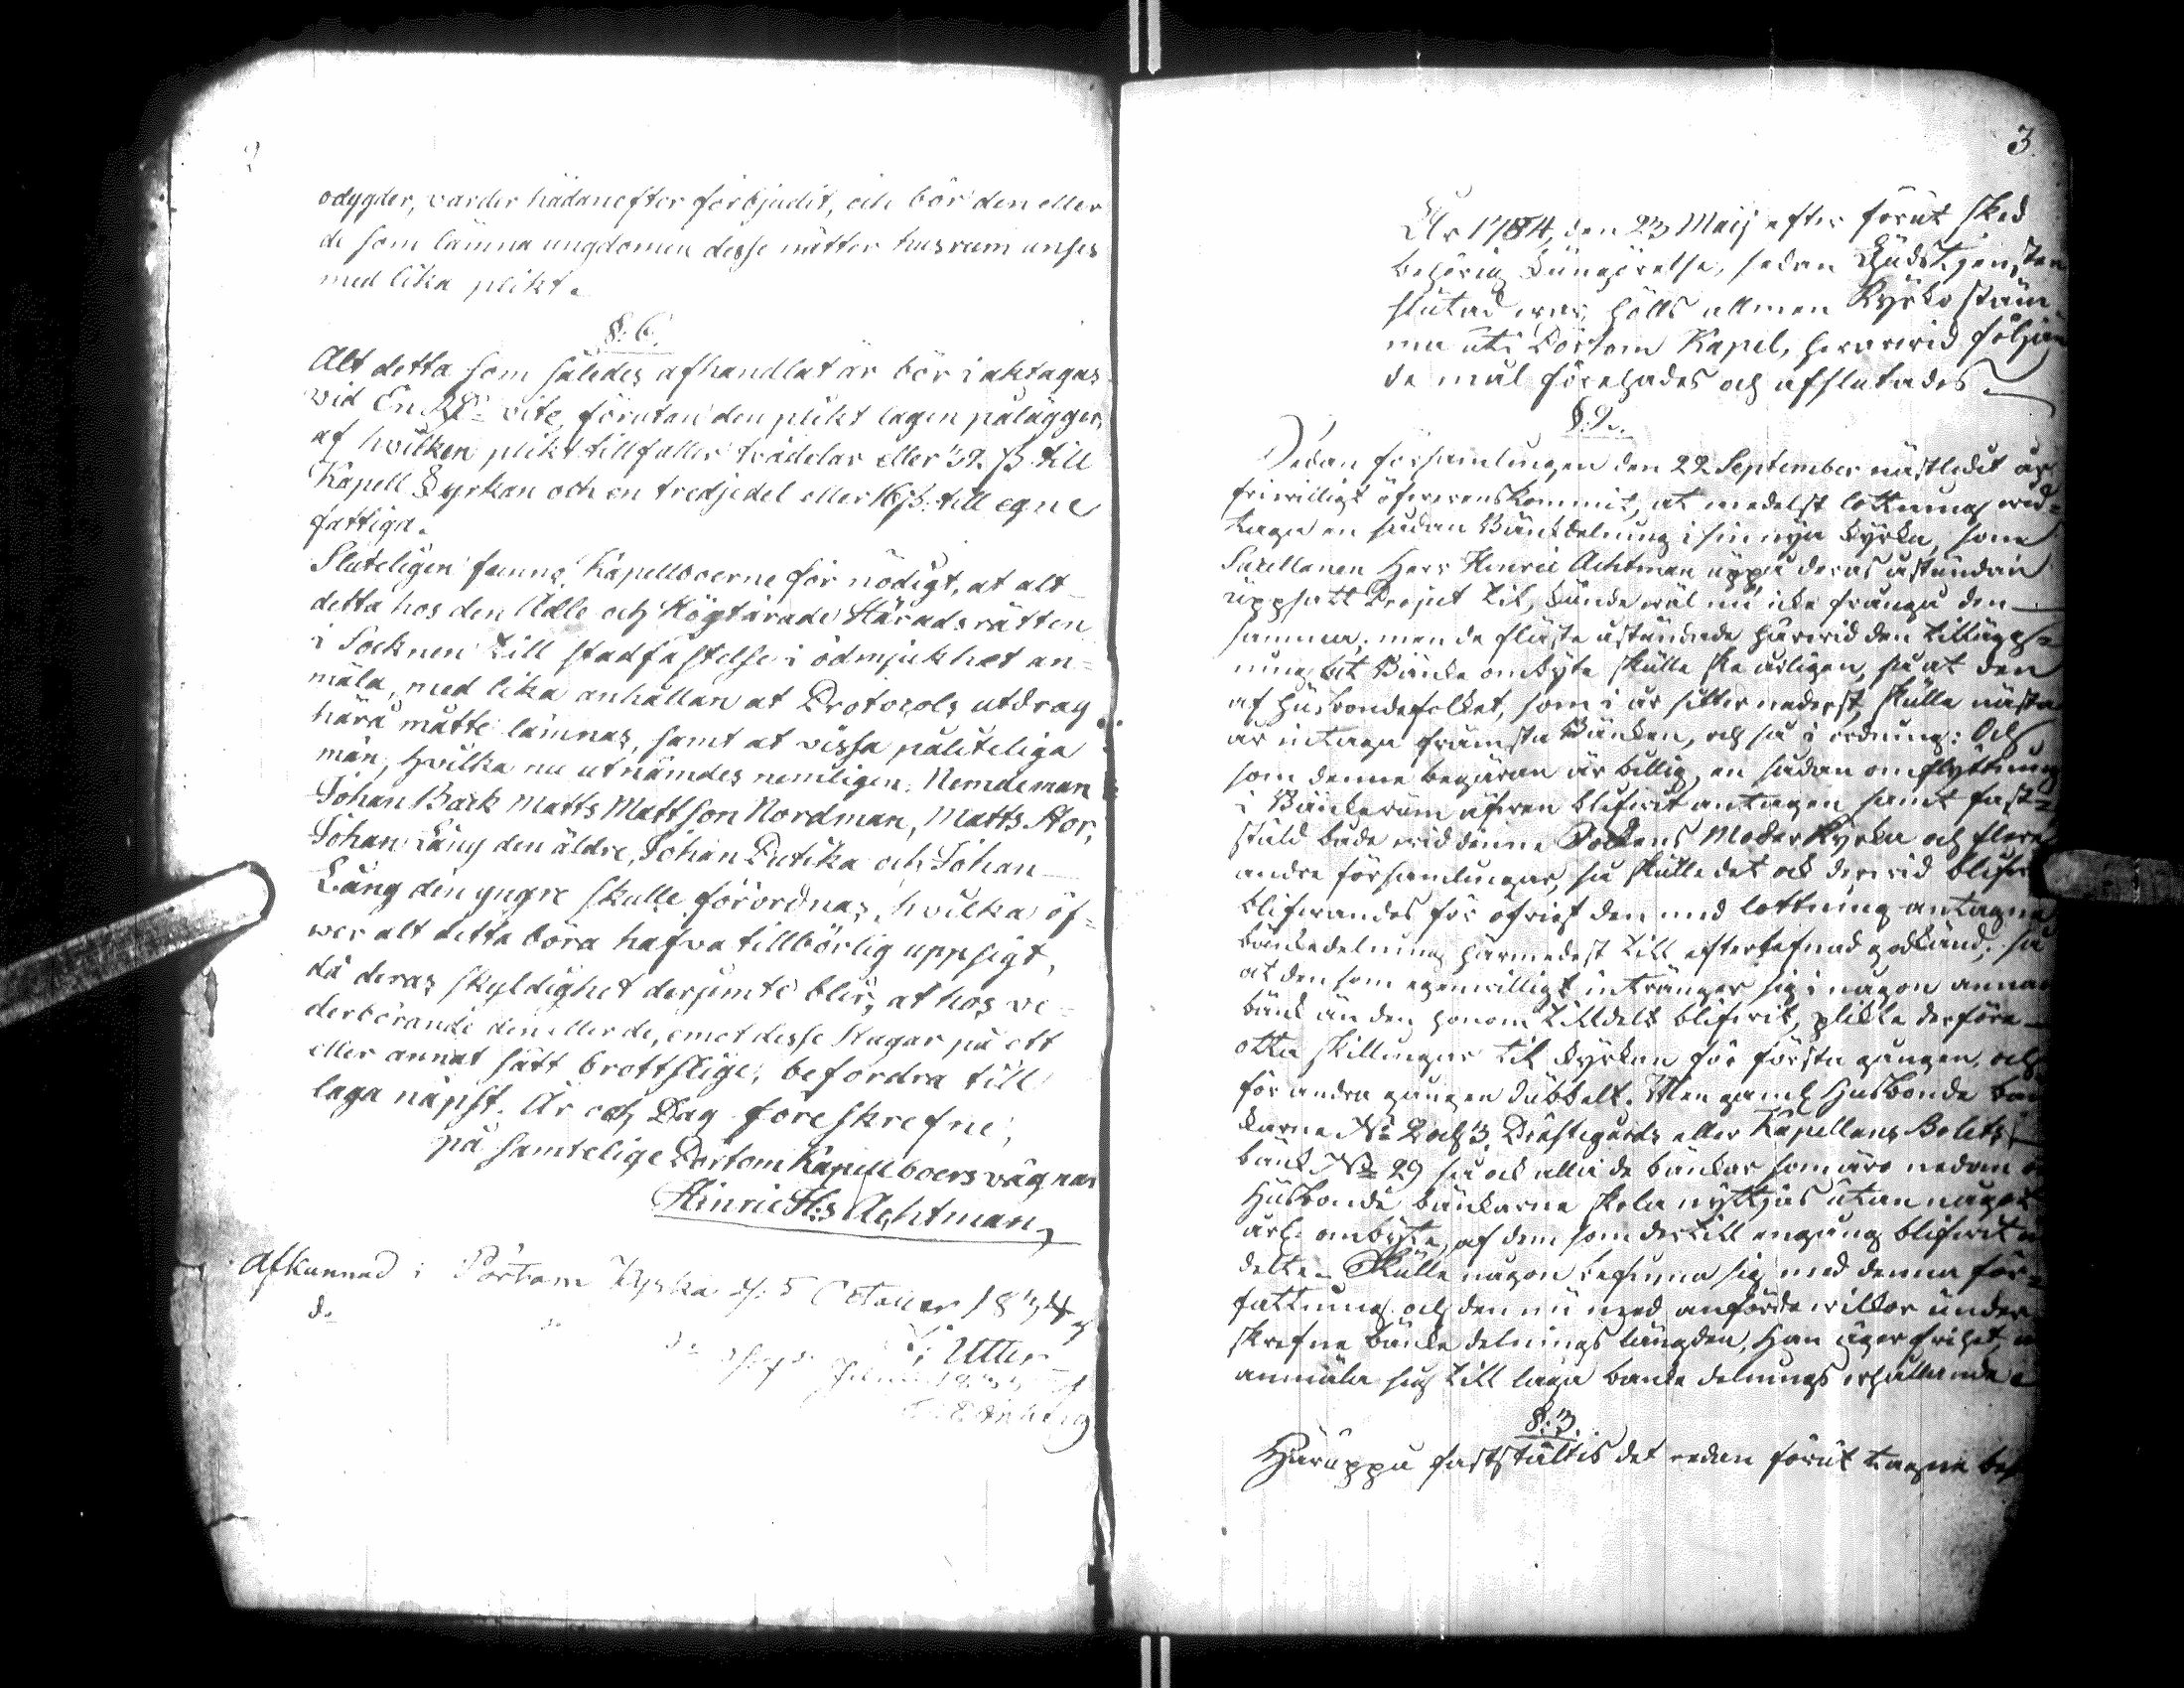 2
odygder, varder hädanefter förbjudit, och bör den eller
de som lämna ungdomen desse nätter husrum anses
med lika plikt.
§. 6.
Alt detta som således afhandlat är bör i akttagas
vid En Rd. vite, förutan den plikt lagen pålägger,
af hvilken plikt tillfaller tvådelar eller 32 ß till
Kapell Kyrkan och en tredjedel eller 16 ß. till egne
fattiga.
Sluteligen funno Kapellboerne för nödigt, at alt
detta hos den Ädle och Högtärade Häradsrätten
i Socknen till stadfästelse i ödmjukhet an-
mäla, med lika anhållan at Protocols utdrag
härå måtte lämnas, samt at vissa pålitelige
män, hvilka nu utnämdes nemligen: Nemdeman
Johan Back Matts Mattson Nordman, Matts Stor,
Johan Lång den äldre, Johan Putika och Johan
Lång den yngre skulle förordnas, hvilka öf-
wer alt detta böra hafva tillbörlig uppsigt,
då deras skyldighet derjemte blir, at hos ve-
derbörande den eller de, emot desse stagar på ett
eller annat sätt brottslige, befordra till
laga näpst. År och Dag föreskrefne,
på samtelige Pörtom Kapellboers vägnar
Hinric H:s Achtman
Afkunnad i Pörtom Kyrka d. 5 October 1834
d:o d:o d:o
Utter
3.
År 1784, den 23 Maij efter förut sked
behörig kungörelse, sedan Gudstjensten
slutad war, hölls allmen Kyrkostäm
ma uti Pörtom Kapel, hwarwid följan
de mål förehades och afslutades
§. 2.
Sedan församlingen den 22 September nästledit år
friwilligt öfwerenskommit, at medelst lottning wid-
taga en sådan Bänkdelning i sin nya kyrka, som
Sacellanen Herr Hinric Achtman uppå deras åstundan
uppsatt Project til, kunde wäl nu icke frångå den-
samma, men de fläste åstundade härwid den tilläggs-
ning, at Bänke ombyte skulle ske årligen, så at den
af husbondefolket, som i år sitter nederst, skulle nästa
år intaga främsta Bänken, och så i ordning: Och
som denne begäran är billig, en sådan omflyttning
i Bänkerum äfwen blifwit antagen samt fast-
stäld både wid denne Sockens Moder Kyrka och flere
andre församlingar, så skulle det ock derwid blifwa
blifwandes för öfrigt den med lottning antagne
bänkedelning härmedelst till efterlefnad godkänd; så
at den som egenwilligt intränger sig i någon annan
bänk än den honom tilldelt blifwit, plikte derföre
otta skillingar til kyrkan för första gången, och
för andra gången dubbelt. Men gamle Husbonde bän
karne No 2 och 3, Prästegårds eller Kapellans Bolets
bänk No 29 så ock alla de bänkar som äro nedan
Husbonde bänkarne skola nyttjas utan något
årl. ombyte, af dem som dertill engång blifwit
delte. Skulle någon befinna sig med denna för-
fattning och den nu med anförde wilkor under-
skrefne bänke delnings längden, han äger frihet
anmäla sig till laga bänke delnings erhållande
§. 3.
Häruppå fastställtes det redan förut tagne